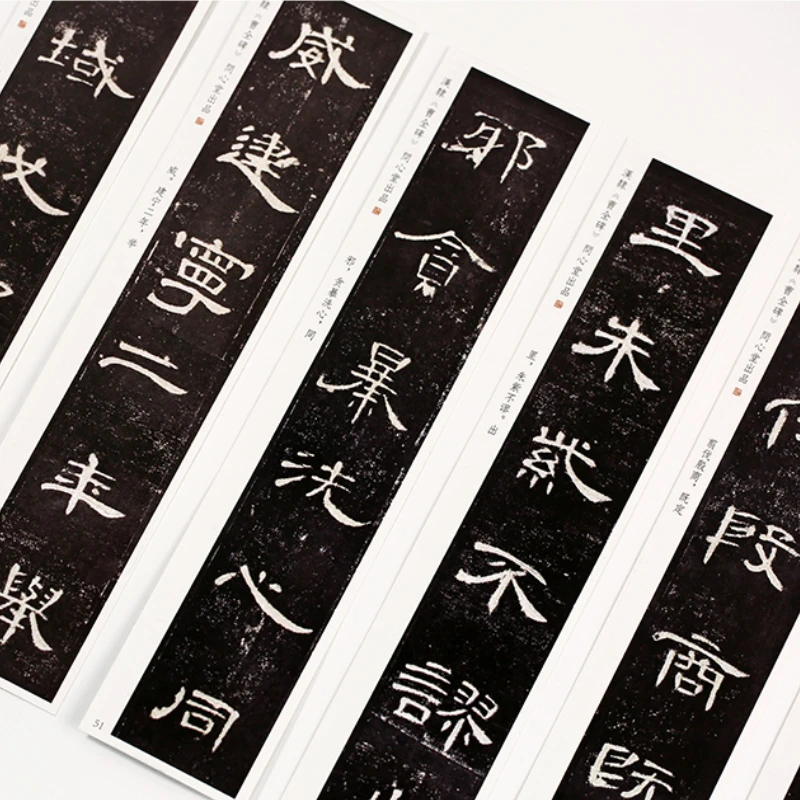 出品
域
戊
隸《曹全碑》 問心堂出品
威
建
寧
二
年
舉
威，建宁二年，举
漢隸《曹全碑》 問心堂出品
邪
貪
暴
洗
心
同
邪，贪暴洗心，同
51
漢隸《曹全碑》 問心堂出品
里
朱
紫
不
謬
里，朱紫不谬。出
漢隸《曹全碑》 問心堂出品
伐
殷
商
既
翦伐殷商，既定